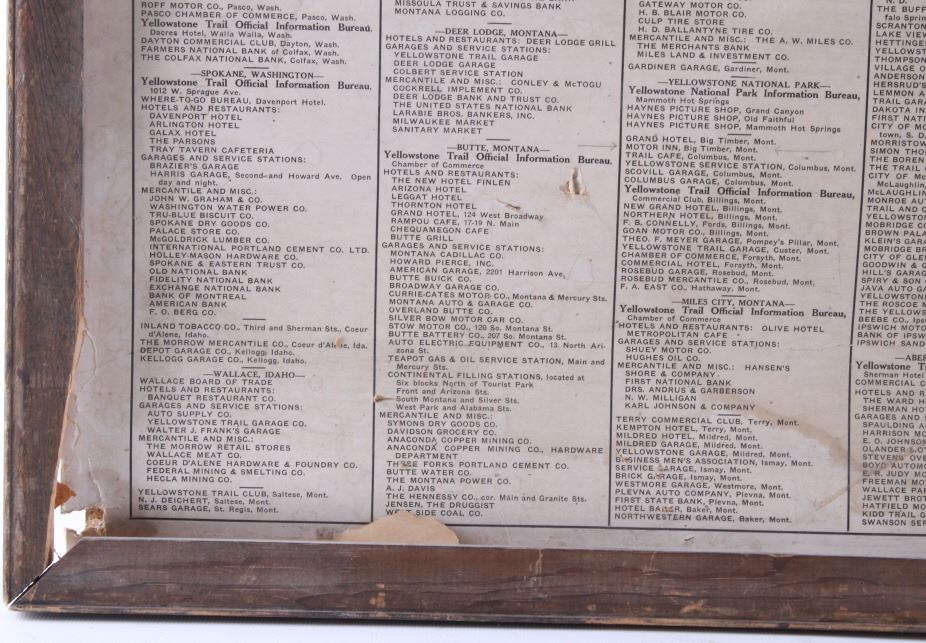 ROFF MOTOR CO., Pasco, Wash.
PASCO CHAMBER OF COMMERCE, Pasco, Wash.
Yellowstone Trail Official Information Bureau.
Dacres Hotel, Walla Walla, Wash.
DAYTON COMMERCIAL CLUB, Dayton, Wash.
FARMERS NATIONAL BANK of Colfax, Wash.
THE COLFAX NATIONAL BANK, Colfax, Wash.
—SPOKANE, WASHINGTON—
Yellowstone Trail Official Information Bureau.
1012 W. Sprague Ave.
WHERE-TO-GO BUREAU, Davenport Hotel.
HOTELS AND RESTAURANTS:
DAVENPORT HOTEL
ARLINGTON HOTEL
GALAX HOTEL
THE PARSONS
TRAY TAVERN CAFETERIA
GARAGES AND SERVICE STATIONS:
BRAZIER'S GARAGE
HARRIS GARAGE, Second—and Howard Ave. Open
day and night.
MERCANTILE AND MISC.:
JOHN W. GRAHAM & CO.
WASHINGTON WATER POWER CO.
TRU-BLUE BISCUIT CO.
SPOKANE DRY GOODS CO.
PALACE STORE CO.
McGOLDRICK LUMBER CO.
INTERNATIONAL PORTLAND CEMENT CO. LTD.
HOLLEY-MASON HARDWARE CO.
SPOKANE & EASTERN TRUST CO.
OLD NATIONAL BANK
FIDELITY NATIONAL BANK
EXCHANGE NATIONAL BANK
BANK OF MONTREAL
AMERICAN BANK
F. O. BERG CO.
INLAND TOBACCO CO., Third and Sherman Sts., Coeur
d'Alene, Idaho.
THE MORROW MERCANTILE CO., Coeur d'Alene, Ida.
DEPOT GARAGE CO., Kellogg, Idaho.
KELLOGG GARAGE CO., Kellogg, Idaho.
—WALLACE, IDAHO—
WALLACE BOARD OF TRADE
HOTELS AND RESTAURANTS:
BANQUET RESTAURANT CO.
GARAGES AND SERVICE STATIONS:
AUTO SUPPLY CO.
YELLOWSTONE TRAIL GARAGE CO.
WALTER J. FRANK'S GARAGE
MERCANTILE AND MISC.:
THE MORROW RETAIL STORES
WALLACE MEAT CO.
COEUR D'ALENE HARDWARE & FOUNDRY CO.
FEDERAL MINING & SMELTING CO.
HECLA MINING CO.
YELLOWSTONE TRAIL CLUB, Saltese, Mont.
N. J. DEICHERT, Saltese, Mont.
SEARS GARAGE, St. Regis, Mont.
MISSOULA TRUST & SAVINGS BANK
MONTANA LOGGING CO.
—DEER LODGE, MONTANA—
HOTELS AND RESTAURANTS: DEER LODGE GRILL
GARAGES AND SERVICE STATIONS
YELLOWSTONE TRAIL GARAGE
DEER LODGE GARAGE
COLBERT SERVICE STATION
MERCANTILE AND MISC: CONLEY & McTOGU
COCKRELL IMPLEMENT CO.
DEER LODGE BANK AND TRUST CO.
THE UNITED STATES NATIONAL BANK
LARABIE BROS. BANKERS, INC.
MILWAUKEE MARKET
SANITARY MARKET
—BUTTE, MONTANA—
Yellowstone Trail Official Information Bureau.
Chamber of Commerce
HOTELS AND RESTAURANTS:
THE NEW HOTEL FINLEN
ARIZONA HOTEL
LEGGAT HOTEL
THORNTON HOTEL
GRAND HOTEL, 124 West Broadway
RAMPOU CAFE, 17-19 N. Main
CHEQUAMEGON CAFE
BUTTE GRILL
GARAGES AND SERVICE STATIONS:
MONTANA CADILLAC CO.
HOWARD PIERCE, INC.
AMERICAN GARAGE, 2201 Harrison Ave.
BUTTE BUICK CO.
BROADWAY GARAGE CO.
CURRIE-CATES MOTOR CO., Montana & Mercury Sts.
MONTANA AUTO & GARAGE CO.
OVERLAND BUTTE CO.
SILVER BOW MOTOR CAR CO.
STOW MOTOR CO., 120 So. Montana St.
BUTTE BATTERY CO., 207 So. Montana St.
AUTO ELECTRIC EQUIPMENT CO., 13 North Ari-
zona St.
TEAPOT GAS & OIL SERVICE STATION, Main and
Mercury Sts.
CONTINENTAL FILLING STATIONS, located at
Six blocks North of Tourist Park
Front and Arizona Sts.
South Montana and Silver Sts.
West Park and Alabama Sts.
MERCANTILE AND MISC.:
SYMONS DRY GOODS CO.
DAVIDSON GROCERY CO.
ANACONDA COPPER MINING CO.
ANACONDA COPPER MINING CO., HARDWARE
DEPARTMENT
THREE FORKS PORTLAND CEMENT CO.
BUTTE WATER CO.
THE MONTANA POWER CO.
A. J. DAVIS
THE HENNESSY CO., cor. Main and Granite Sts.
JENSEN, THE DRUGGIST
WEST SIDE COAL CO.
GATEWAY MOTOR CO.
H. B. BLAIR MOTOR CO.
CULP TIRE STORE
H. D. BALLANTYNE TIRE CO.
MERCANTILE AND MISC.: THE A. W. MILES CO.
THE MERCHANTS BANK
MILES LAND & INVESTMENT CO.
GARDINER GARAGE, Gardiner, Mont.
—YELLOWSTONE NATIONAL PARK—
Yellowstone National Park Information Bureau,
Mammoth Hot Springs
HAYNES PICTURE SHOP, Grand Canyon
HAYNES PICTURE SHOP, Old Faithful
HAYNES PICTURE SHOP, Mammoth Hot Springs
GRAND HOTEL, Big Timber, Mont.
MOTOR INN, Big Timber, Mont.
TRAIL CAFE, Columbus, Mont.
YELLOWSTONE SERVICE STATION, Columbus, Mont.
SCOVILL GARAGE, Columbus, Mont.
COLUMBUS GARAGE, Columbus, Mont.
Yellowstone Trail Official Information Bureau,
Commercial Club, Billings, Mont.
NEW GRAND HOTEL, Billings, Mont.
NORTHERN HOTEL, Billings, Mont.
F. B. CONNELLY, Fords, Billings, Mont.
GOAN MOTOR CO., Billings, Mont.
THEO. F. MEYER GARAGE, Pompey's Pillar, Mont.
YELLOWSTONE TRAIL GARAGE, Custer, Mont.
CHAMBER OF COMMERCE, Forsyth, Mont.
COMMERCIAL HOTEL, Forsyth, Mont.
ROSEBUD GARAGE, Rosebud, Mont.
ROSEBUD MERCANTILE CO., Rosebud, Mont.
F. A. EAST CO., Hathaway, Mont.
—MILES CITY, MONTANA—
Yellowstone Trail Official Information Bureau,
Chamber of Commerce
HOTELS AND RESTAURANTS: OLIVE HOTEL
METROPOLITAN CAFE
GARAGES AND SERVICE STATIONS:
SHUEY MOTOR CO.
HUGHES OIL CO.
MERCANTILE AND MISC.: HANSEN'S
SHORE & COMPANY
FIRST NATIONAL BANK
DRS. ANDRUS & GARBERSON
N. W. MILLIGAN
KARL JOHNSON & COMPANY
TERRY COMMERCIAL CLUB, Terry, Mont.
KEMPTON HOTEL, Terry, Mont.
MILDRED HOTEL, Mildred, Mont.
MILDRED GARAGE, Mildred, Mont.
YELLOWSTONE GARAGE, Mildred, Mont.
BUSINESS MEN'S ASSOCIATION, Ismay, Mont.
SERVICE GARAGE, Ismay, Mont.
BRICK GARAGE, Ismay, Mont.
WESTMORE GARAGE, Westmore, Mont.
PLEVNA AUTO COMPANY, Plevna, Mont.
FIRST STATE BANK, Plevna, Mont.
HOTEL BAKER, Baker, Mont.
NORTHWESTERN GARAGE, Baker, Mont.
N. D.
THE BUFF
falo Spri
SCRANTON
LAKE VIEW
HETTINGER
YELLOWST
THOMPSON
VILLAGE O
ANDERSON
HERSRUD'S
LEMMON A
TRAIL GARA
DAKOTA IN
FIRST NATI
CITY OF MO
town, S. D.
MORRISTOW
SIMON THO
THE BOREN
THE TRAIL
CITY OF Mc
McLaughlin,
McLAUGHLIN
MONROE AUT
TRAIL AND
YELLOWSTO
MOBRIDGE CO
BROWN PALA
KLEIN'S GARA
MOBRIDGE BR
CITY OF GLE
GOODWIN & C
HILL'S GARAG
SPIRY & SON
JAVA AUTO GA
YELLOWSTONE
THE ROSCOE M
THE YELLOWS
BEEBE CO., Ips
IPSWICH MOTO
BANK OF IPSW
IPSWICH SAND
—ABER
Yellowstone T
Sherman Hotel
COMMERCIAL C
HOTELS AND R
THE WARD H
SHERMAN HOT
GARAGES AND
SPAULDING A
HARRISON MO
E. O. JOHNSO
OLANDER LO
STEVENS OVE
BOYD AUTOMO
E. R. JUDY MO
FREEMAN MOT
WALLACE PAI
JEWETT BROT
HATFIELD MO
KIDD TRAIL G
SWANSON SER